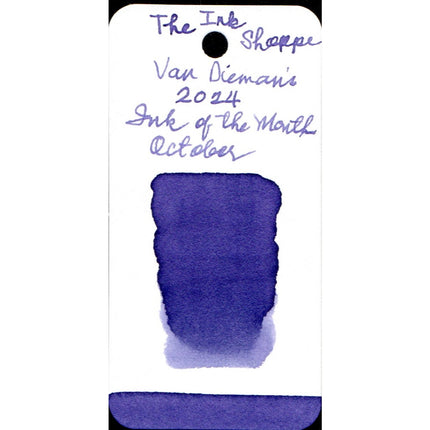 The Ink
Shoppe
Van Dieman's
2024
Ink of the Month
October